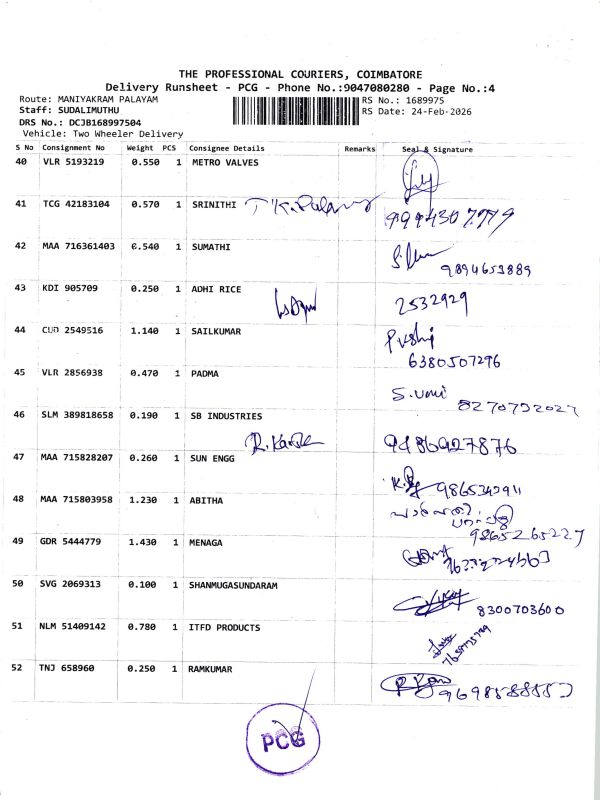 THE PROFESSIONAL COURIERS, COIMBATORE
Delivery Runsheet - PCG - Phone No.:9047080280 - Page No.:4
Route: MANIYAKRAM PALAYAM
RS No.: 1689975
Staff: SUDALIMUTHU
RS Date: 24-Feb-2026
DRS No.: DCJB168997504
Vehicle: Two Wheeler Delivery
S No Consignment No Weight PCS Consignee Details Remarks Seal & Signature
40 VLR 5193219 0.550 1 METRO VALVES
41 TCG 42183104 0.570 1 SRINITHI
42 MAA 716361403 6.540 1 SUMATHI 9894653889
43 KDI 905709 0.250 1 ADHI RICE 2532929
44 CUD 2549516 1.140 1 SAILKUMAR
6380507296
45 VLR 2856938 0.470 1 PADMA
46 SLM 389818658 0.190 1 SB INDUSTRIES
9486927876
47 MAA 715828207 0.260 1 SUN ENGG
48 MAA 715803958 1.230 1 ABITHA
9865265227
49 GDR 5444779 1.430 1 MENAGA
50 SVG 2069313 0.100 1 SHANMUGASUNDARAM
8300703600
51 NLM 51409142 0.780 1 ITFD PRODUCTS
52 TNJ 658960 0.250 1 RAMKUMAR
PCG